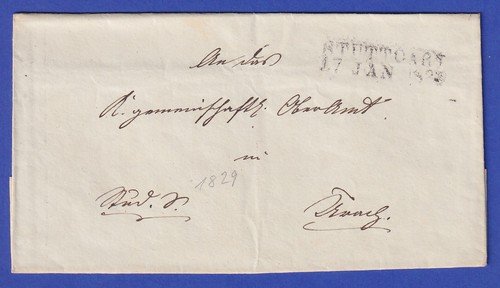 An das
STUTTGART
17 JAN 1829
K. gemeinschaftl. OberAmt
in
1829
Urach.